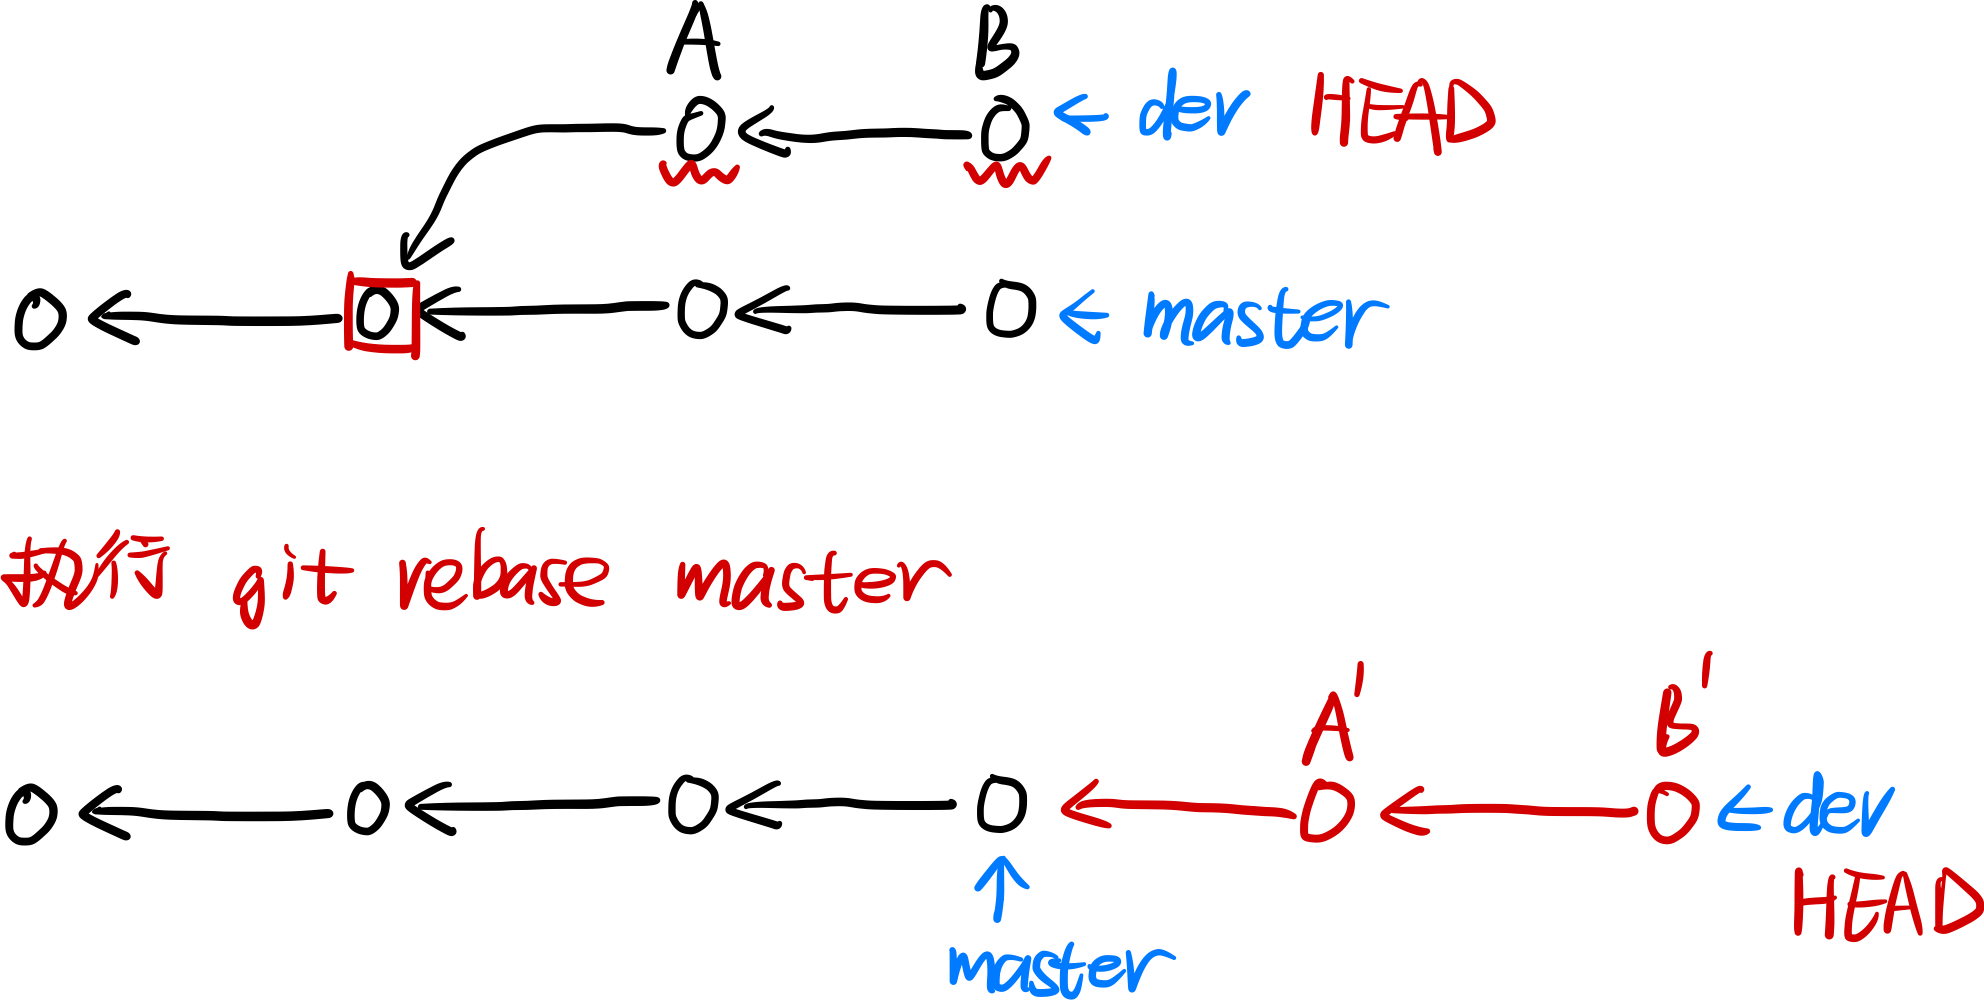 A B
dev HEAD
master
执行 git rebase master
A' B'
dev
HEAD
master